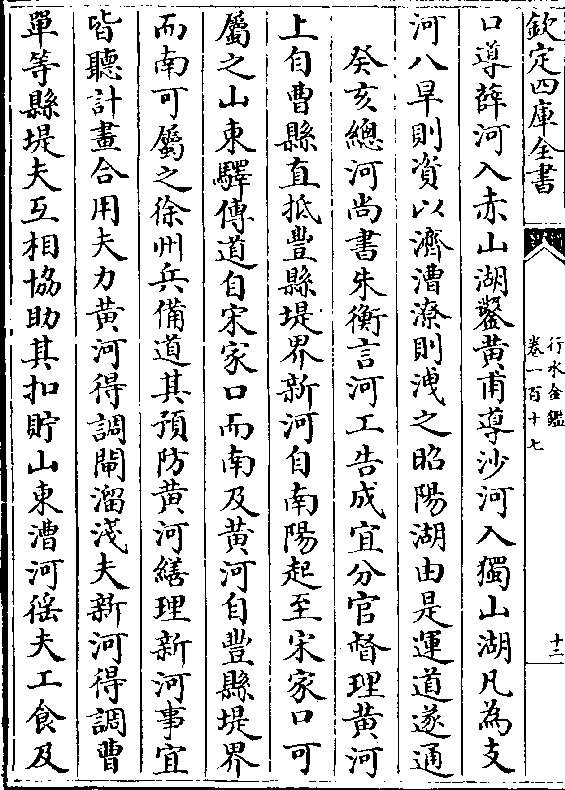 欽定四庫全書
行水金鑑
卷一百十七
十二
口導薛河入赤山湖鑿黃甫導沙河入獨山湖凡為支
河八旱則資以濟漕潦則洩之昭陽湖由是運道遂通
癸亥總河尚書朱衡言河工告成宜分官督理黃河
上自曹縣直抵豐縣堤界新河自南陽起至宋家口可
屬之山東驛傳道自宋家口而南及黃河自豐縣堤界
而南可屬之徐州兵備道其預防黃河繕理新河事宜
皆聽計畫合用夫力黃河得調閘溜淺夫新河得調曹
單等縣堤夫互相協助其扣貯山東漕河徭夫工食及